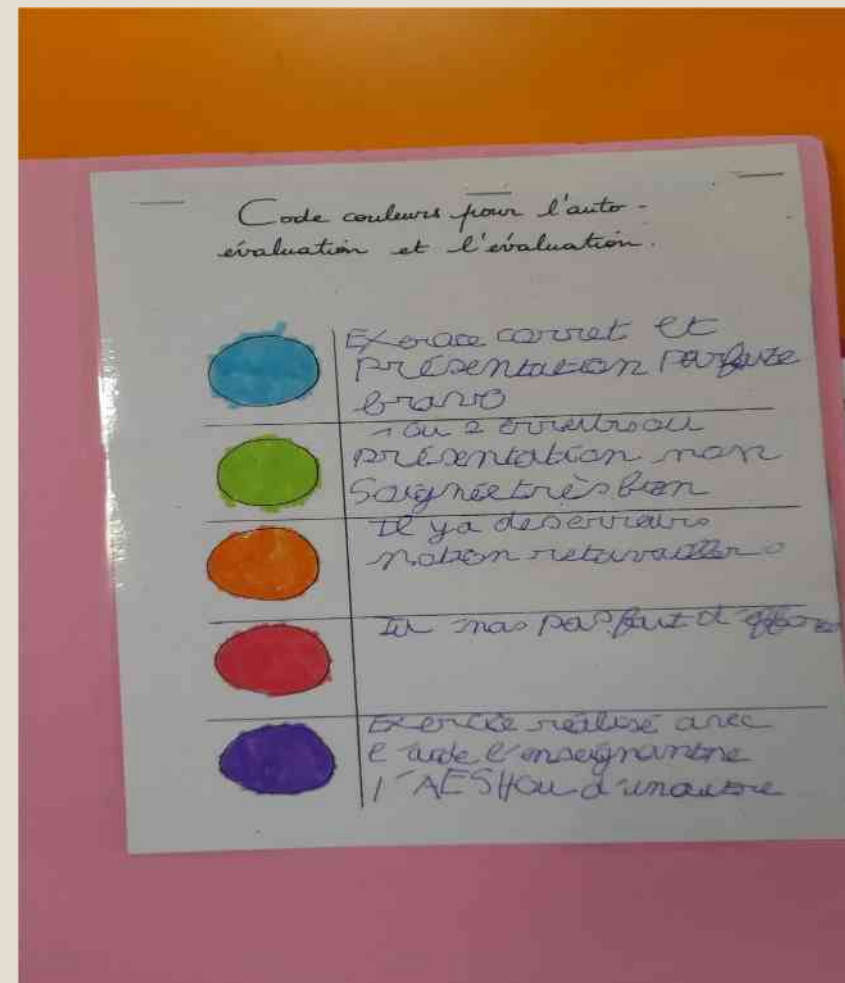 Code couleurs pour l'auto-
évaluation et l'évaluation.
Exercice correct et
présentation parfaite
bravo
1 ou 2 erreurs ou
présentation non
Soignée très bien
Il y a des erreurs
notion
Tu n'as pas fait d'effort
Exercice réalisé avec
l'aide l'enseignante
l'AESH ou d'un autre